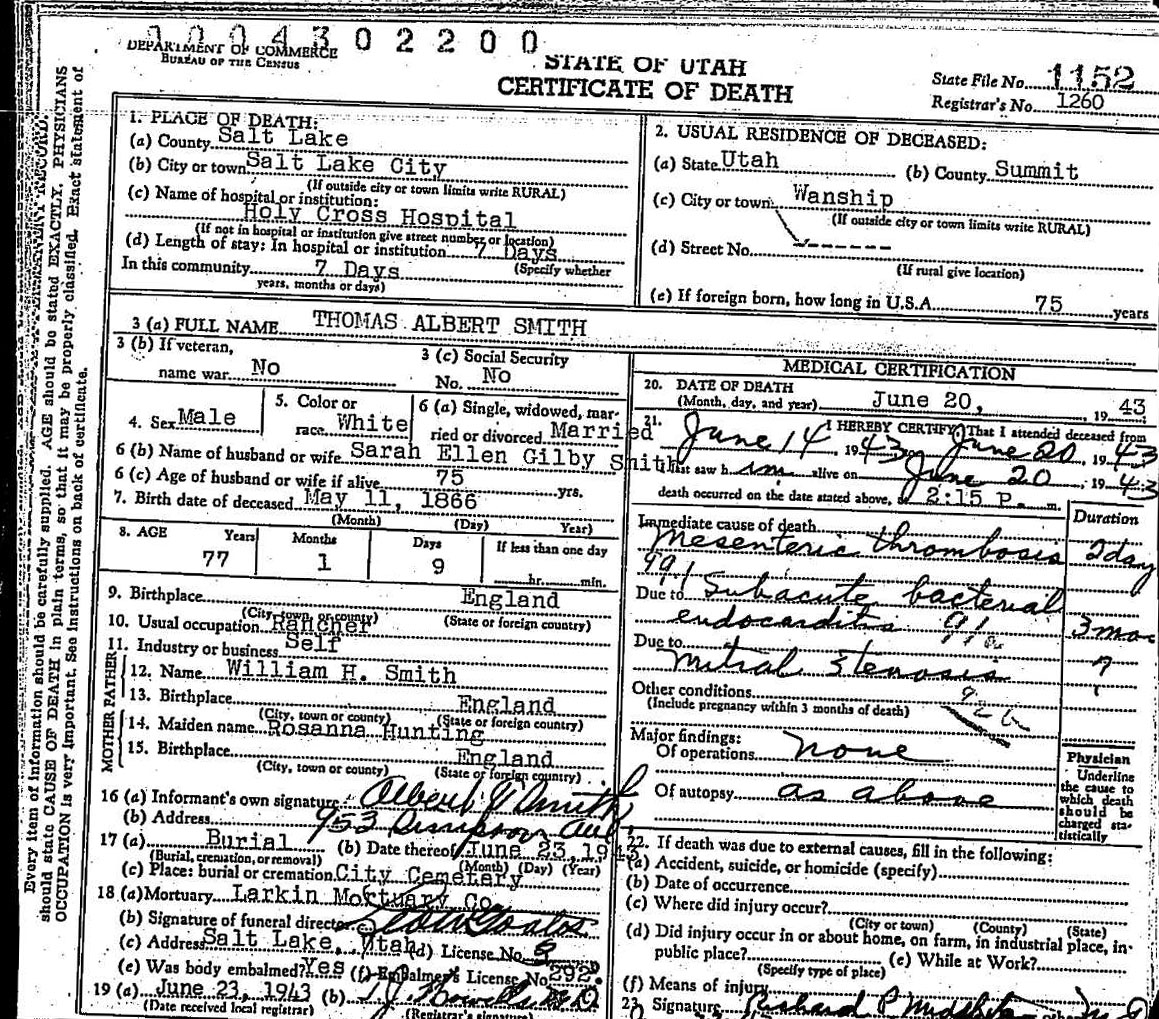 1 0 0 4 3 0 2 2 0 0
DEPARTMENT OF COMMERCE
BUREAU OF THE CENSUS
STATE OF UTAH
CERTIFICATE OF DEATH
State File No. 1152
Registrar's No. 1260
Every item of information should be carefully supplied. AGE should be stated EXACTLY. PHYSICIANS
should state CAUSE OF DEATH in plain terms, so that it may be properly classified. Exact statement of
OCCUPATION is very important. See instructions on back of certificate.
1. PLACE OF DEATH:
(a) County Salt Lake
(b) City or town Salt Lake City
(If outside city or town limits write RURAL)
(c) Name of hospital or institution:
Holy Cross Hospital
(If not in hospital or institution give street number or location)
(d) Length of stay: In hospital or institution 7 Days
In this community 7 Days (Specify whether
years, months or days)
2. USUAL RESIDENCE OF DECEASED:
(a) State Utah (b) County Summit
(c) City or town Wanship
(If outside city or town limits write RURAL)
(d) Street No. -------
(If rural give location)
(e) If foreign born, how long in U.S.A. 75 years
3 (a) FULL NAME THOMAS ALBERT SMITH
3 (b) If veteran,
name war No
3 (c) Social Security
No. No
4. Sex Male
5. Color or
race White
6 (a) Single, widowed, mar-
ried or divorced Married
6 (b) Name of husband or wife Sarah Ellen Gilby Smith
6 (c) Age of husband or wife if alive 75 yrs.
7. Birth date of deceased May 11, 1866
(Month) (Day) Year)
8. AGE Years Months Days If less than one day
77 1 9 hr. min.
9. Birthplace England
(City, town or county) (State or foreign country)
10. Usual occupation Rancher
11. Industry or business Self
FATHER
12. Name William H. Smith
13. Birthplace England
(City, town or county) (State or foreign country)
MOTHER
14. Maiden name Rosanna Hunting
15. Birthplace England
(City, town or county) (State or foreign country)
16 (a) Informant's own signature Albert Smith
(b) Address 953
17 (a) Burial (b) Date thereof June 23, 1943
(Burial, cremation, or removal) (Month) (Day) (Year)
(c) Place: burial or cremation City Cemetery
18 (a) Mortuary Larkin Mortuary Co
(b) Signature of funeral director
(c) Address Salt Lake, Utah (d) License No.
(e) Was body embalmed? Yes (f) Embalmer's License No. 292
19 (a) June 23, 1943 (b)
(Date received local registrar) (Registrar's signature)
MEDICAL CERTIFICATION
20. DATE OF DEATH
(Month, day, and year) June 20, 1943
21. I HEREBY CERTIFY, That I attended deceased from
June 14 1943 June 20, 1943
last saw h im alive on June 20 1943
death occurred on the date stated above, at 2:15 P. m.
Duration
Immediate cause of death
Mesenteric thrombosis 2 day
991
Due to Subacute bacterial
endocarditis 91a 3 mos
Due to
mitral stenosis ?
Other conditions 92b
(Include pregnancy within 3 months of death)
Major findings:
Of operations none
Of autopsy as above
Physician
Underline
the cause to
which death
should be
charged sta-
tistically
22. If death was due to external causes, fill in the following:
(a) Accident, suicide, or homicide (specify)
(b) Date of occurrence
(c) Where did injury occur?
(City or town) (County) (State)
(d) Did injury occur in or about home, on farm, in industrial place, in
public place? (e) While at Work?
(Specify type of place)
(f) Means of injury
23. Signature Richard P